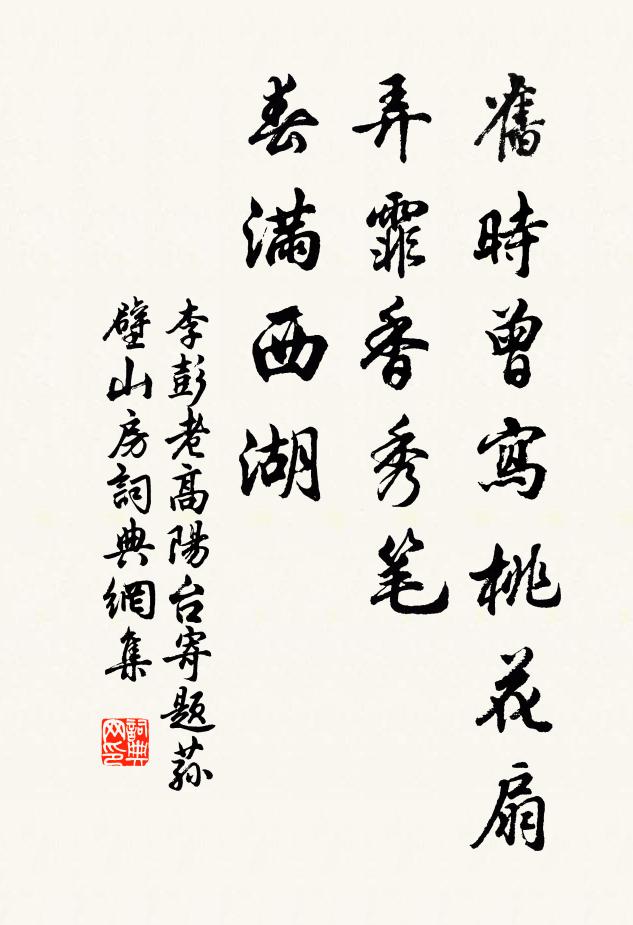 舊時曾寫桃花扇
弄霏香秀笔
春滿西湖
李彭老高陽台寄題蓀
壁山房詞典網集
詞典网印